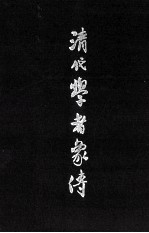 清代學者象傳